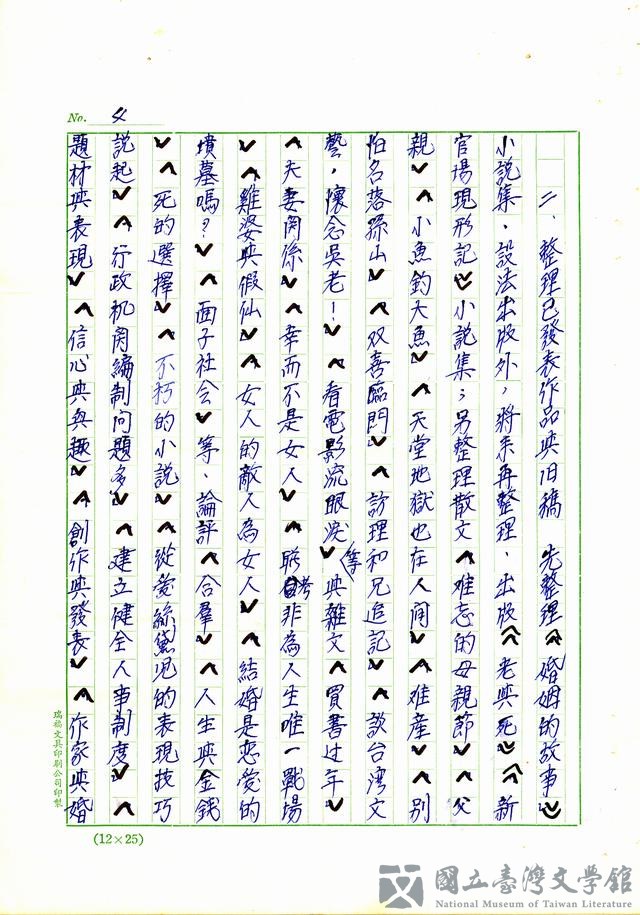 No. 4
二、整理已發表作品與旧稿　先整理《婚姻的故事》
小說集，設法出版外，將來再整理、出版《老與死》《新
官場現形記》小說集；另整理散文〈难忘的母親節〉〈父
親〉〈小魚釣大魚〉〈天堂地獄也在人间〉〈难産〉〈别
怕名落孫山〉〈双喜臨門〉〈訪理和兄追記〉〈談台湾文
藝，懷念吳老！〉〈看電影流眼淚〉等與雜文〈買書过年〉
〈夫妻関係〉〈幸而不是女人〉〈聯考非為人生唯一戰場〉
〈雞婆與假仙〉〈女人的敵人為女人〉〈結婚是恋愛的
墳墓嗎？〉〈面子社会〉等、論評〈合羣〉〈人生與金錢〉
〈死的選擇〉〈不朽的小說〉〈從愛絲黛児的表現技巧
說起〉〈行政机関編制问題多〉〈建立健全人事制度〉〈
題材與表現〉〈信心與興趣〉〈創作與發表〉〈作家與婚
瑞福文具印刷公司印製
(12×25)
國立臺灣文學館
National Museum of Taiwan Literature